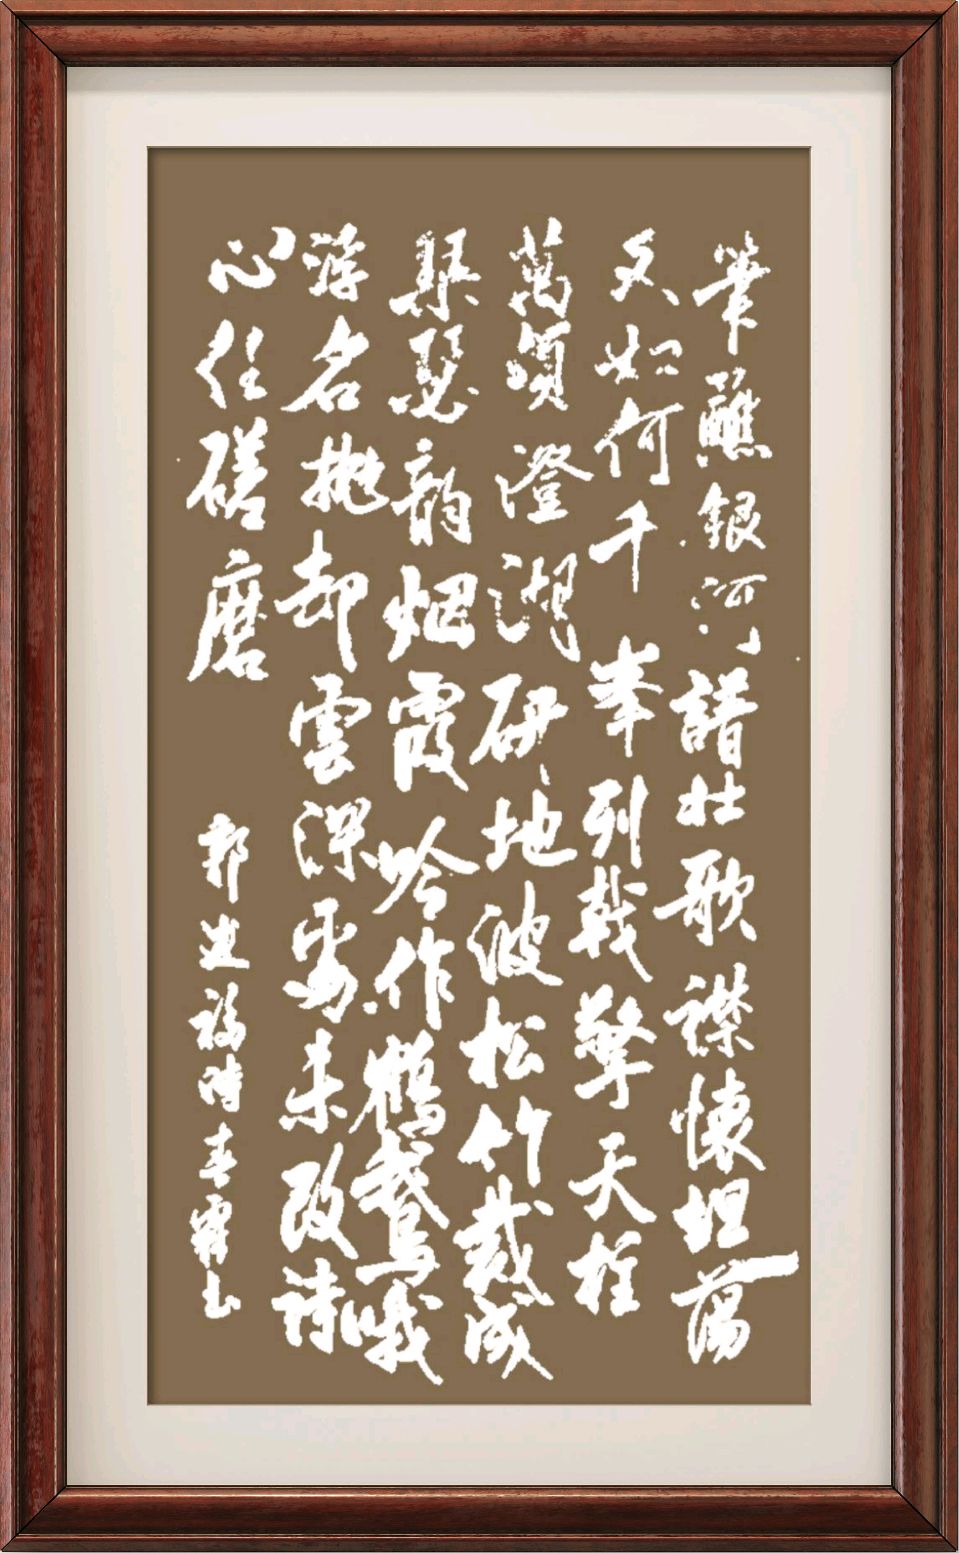 筆蘸銀河譜壯歌襟懷坦蕩
又如何千峯列戟擎天柱
萬頃澄湖研地波松竹裁成
琴瑟韵烟霞吟作鶴鵞哦
浮名拋却雲深処未改詩
心任磋磨
郭建福詩春霖书